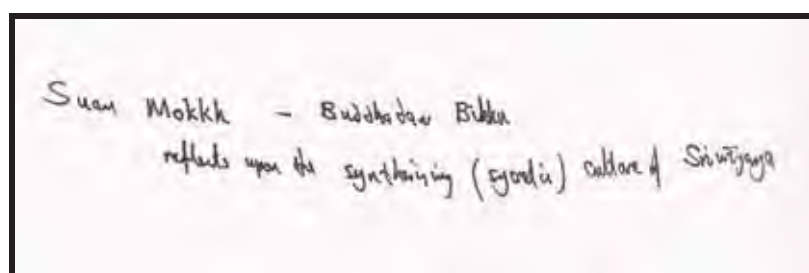 Suan Mokkh - Buddhadasa Bikku
reflects upon the synthesizing (syncretic) culture of Sriwijaya